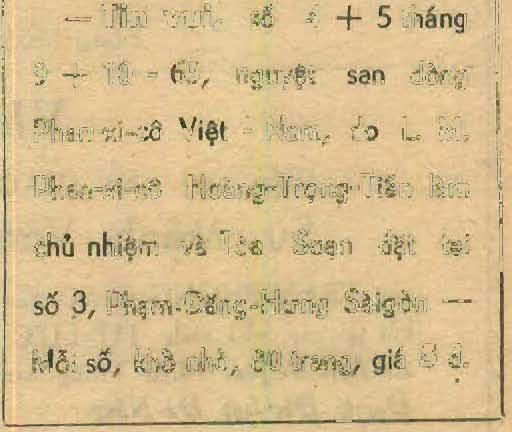 — Tin vui, số 4 + 5 tháng
9 + 10 - 65, nguyệt san dòng
Phan-xi-cô Việt - Nam, do L. M.
Phan-xi-cô Hoàng-Trọng-Tiến làm
chủ nhiệm và Tòa Soạn đặt tại
số 3, Phạm-Đăng-Hưng Sàigòn —
Mỗi số, khổ nhỏ, 80 trang, giá 5 đ.